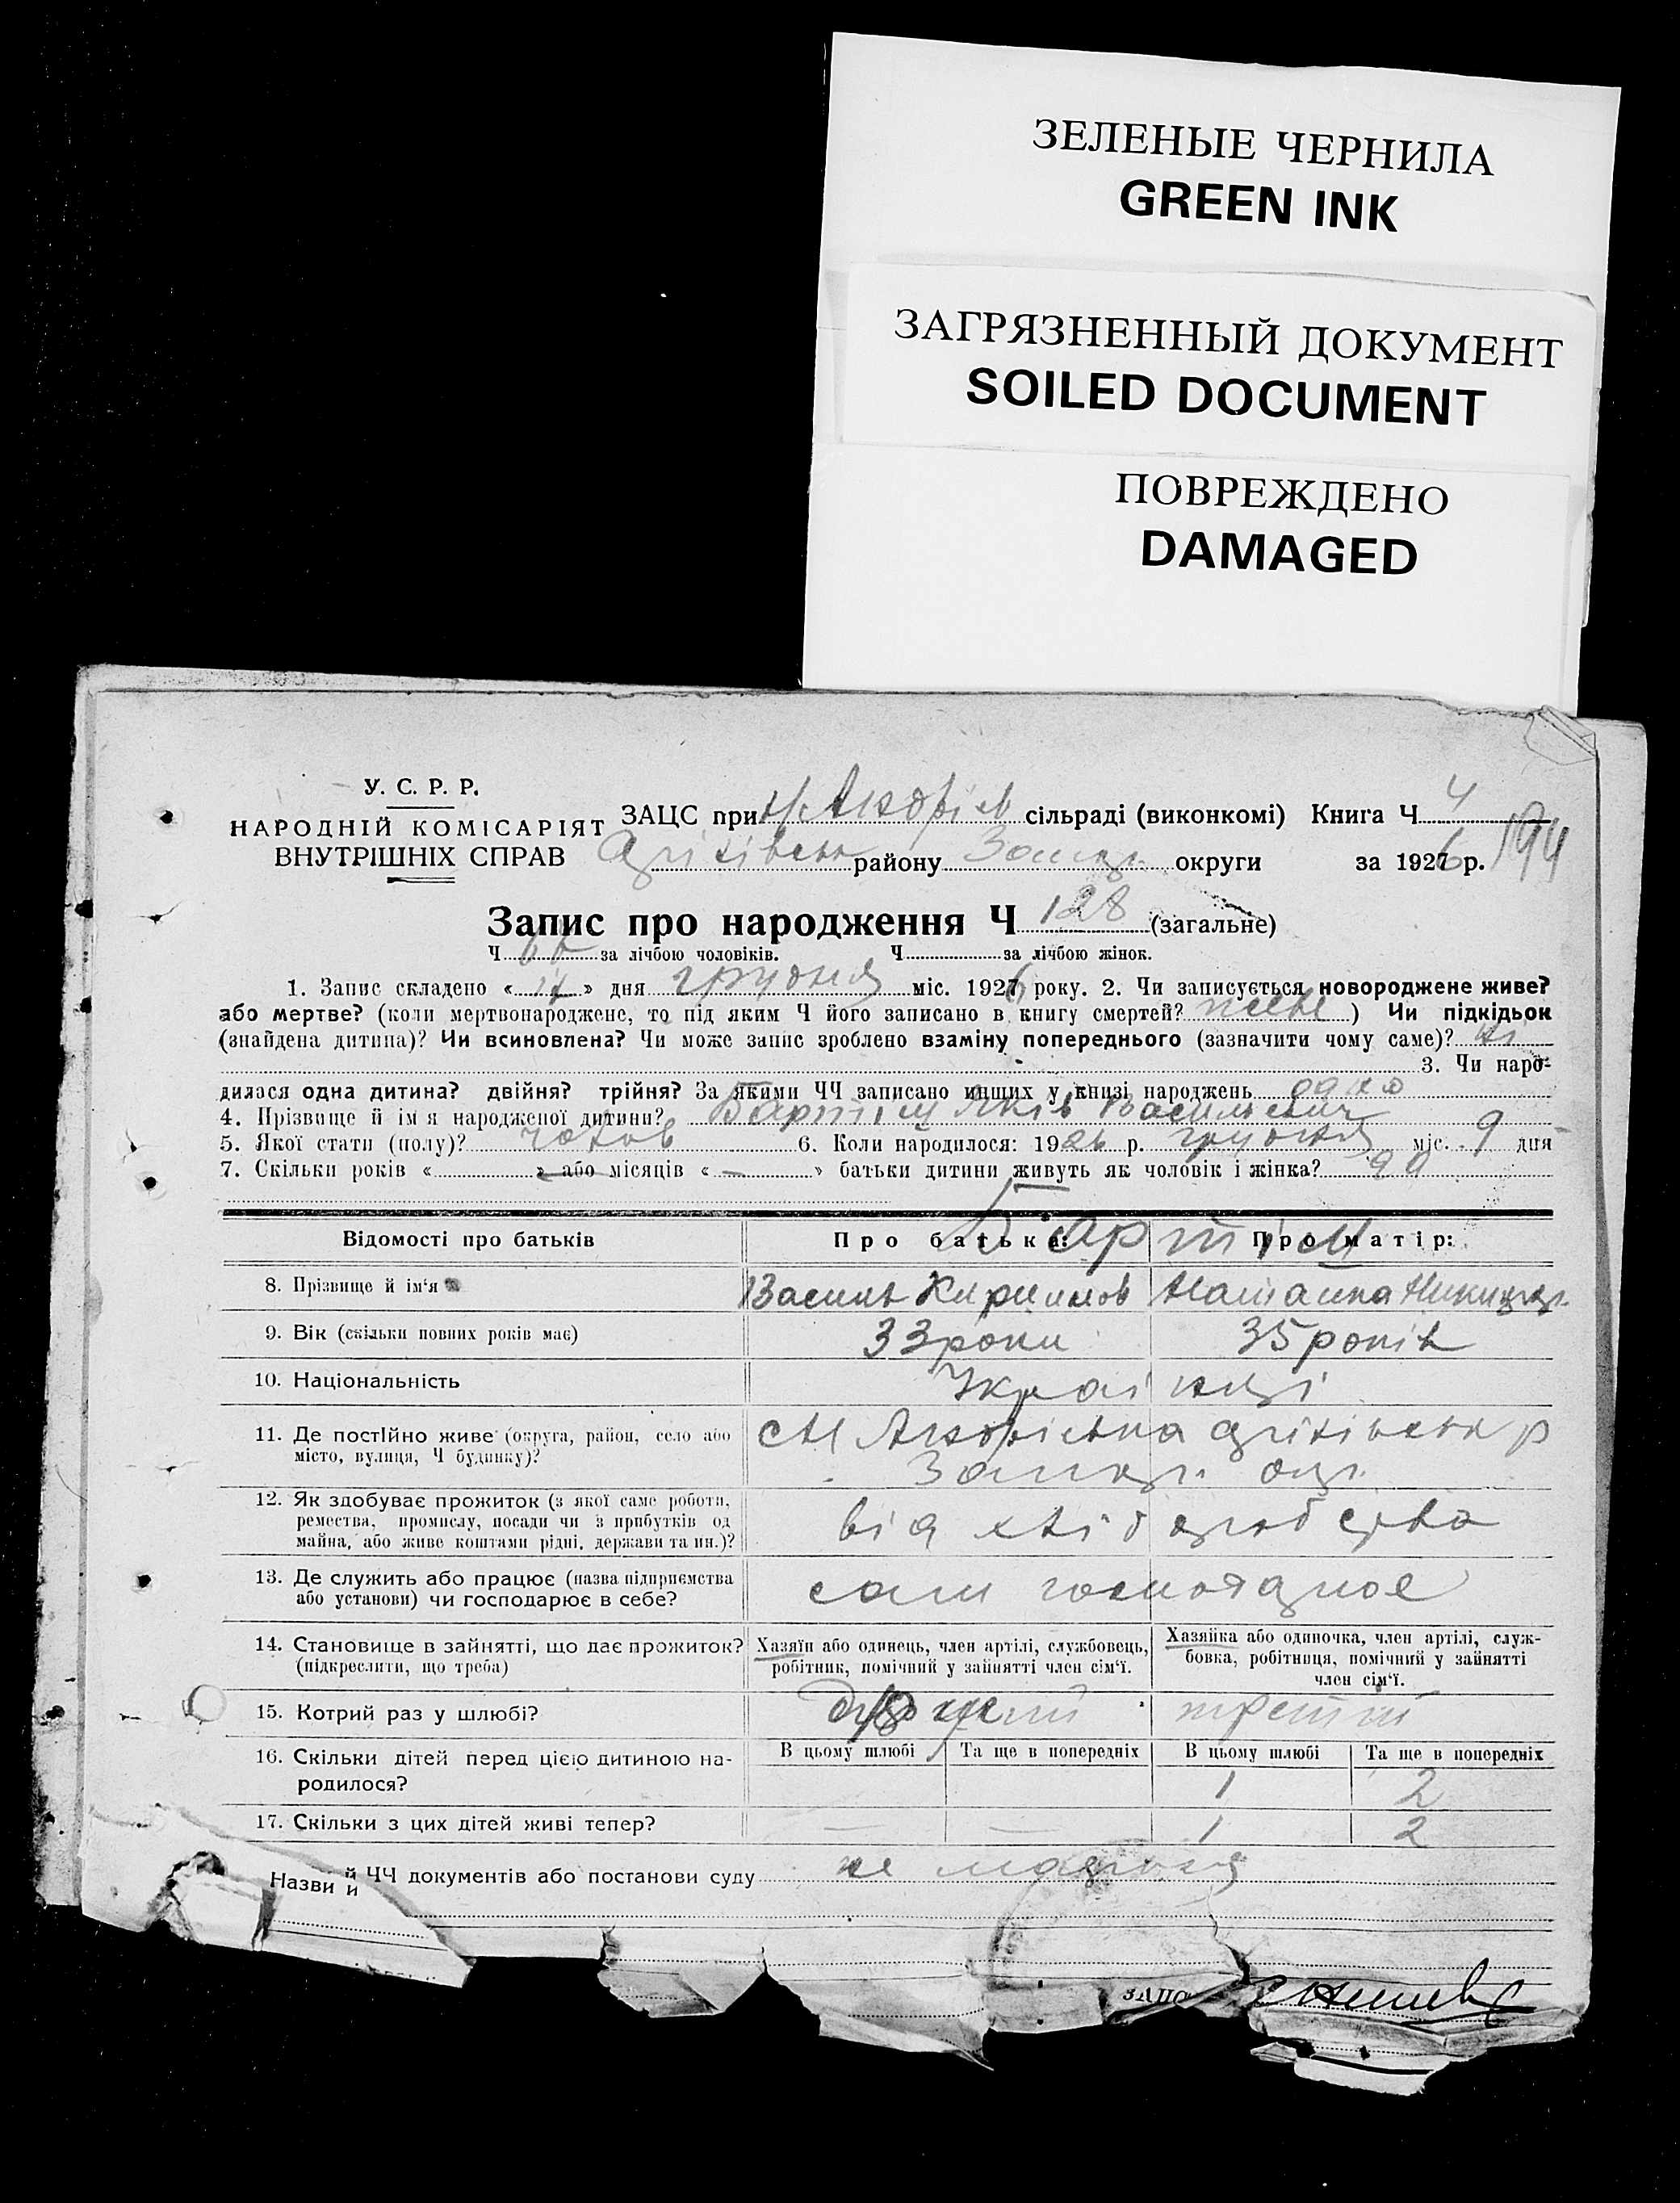 ЗЕЛЕНЫЕ ЧЕРНИЛА
GREEN INK
ЗАГРЯЗНЕННЫЙ ДОКУМЕНТ
SOILED DOCUMENT
ПОВРЕЖДЕНО
DAMAGED
У. С. Р. Р.
НАРОДНІЙ КОМІСАРІЯТ
ВНУТРІШНІХ СПРАВ
ЗАЦС при сільраді (виконкомі) Книга Ч 4
району округи за 1926 р. 194
Запис про народження Ч 128 (загальне)
Ч за лічбою чоловіків. Ч за лічбою жінок.
1. Запис складено « » дня грудня міс. 1926 року. 2. Чи записується новороджене живе?
або мертве? (коли мертвонароджене, то під яким Ч його записано в книгу смертей? живе) Чи підкідьок
(знайдена дитина)? Чи всиновлена? Чи може запис зроблено взаміну попереднього (зазначити чому саме)? ні
3. Чи наро-
дилася одна дитина? двійня? трійня? За якими ЧЧ записано инших у книзі народжень одно
4. Прізвище й ім'я народженої дитини? Бартіш Яків Васильевич
5. Якої стати (полу)? чолов 6. Коли народилося: 1926 р. грудня міс. 9 дня
7. Скільки років « » або місяців « — » батьки дитини живуть як чоловік і жінка?
Бартіш
Відомості про батьків Про батька: Про матір:
8. Прізвище й ім'я Василь Кирилов Наталка
9. Вік (скільки повних років має) 33 роки 35 років
10. Національність Українці
11. Де постійно живе (округа, район, село або
місто, вулиця, Ч будинку)?
12. Як здобуває прожиток (з якої саме роботи,
ремества, промислу, посади чи з прибутків од
майна, або живе коштами рідні, держави та ин.)?
від хлібороб
13. Де служить або працює (назва підприємства
або установи) чи господарює в себе?
сам
14. Становище в зайнятті, що дає прожиток?
(підкреслити, що треба)
Хазяїн або одинець, член артілі, службовець,
робітник, помічний у зайнятті член сім'ї.
Хазяйка або одиночка, член артілі, служ-
бовка, робітниця, помічний у зайнятті
член сім'ї.
15. Котрий раз у шлюбі? другий третій
16. Скільки дітей перед цією дитиною на-
родилося?
В цьому шлюбі Та ще в попередніх В цьому шлюбі Та ще в попередніх
1 2
17. Скільки з цих дітей живі тепер? — — 1 2
Назви й ЧЧ документів або постанови суду не